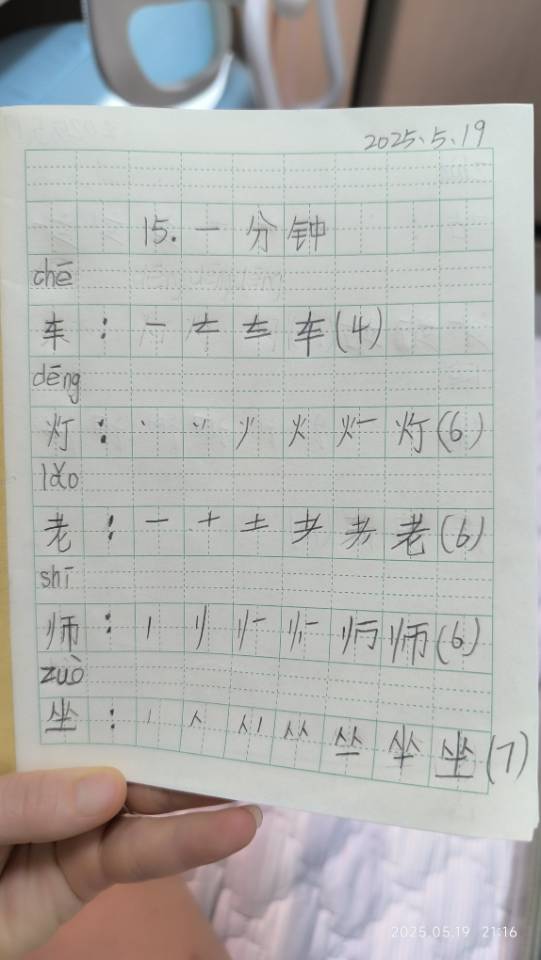 2025.5.19
15. 一分钟
chē
车：一 𠂇 车(4)
dēng
灯：丶 丷 火 灯(6)
lǎo
老：一 十 土 耂 老(6)
shī
师：丨 师(6)
zuò
坐：丿 人 从 坐(7)
2025.05.19 21:16